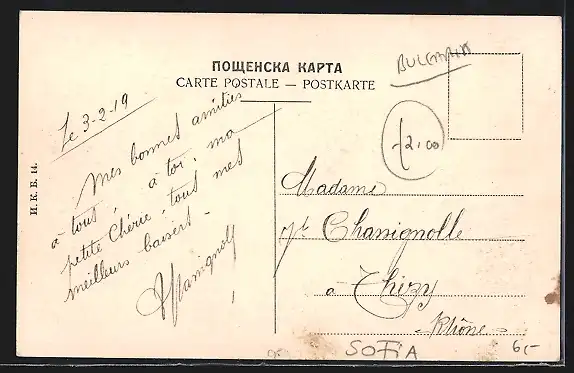 ПОЩЕНСКА КАРТА
CARTE POSTALE — POSTKARTE
BULGARIA
Le 3-2-19
Mes bonnes amitiés
à tous, à toi, ma
petite Chérie, tous mes
meilleurs baisers -
Chanignolle
И. К. Б. 14.
2,00
Madame
Chanignolle
à Thizy
Rhône
SOFIA
6,-